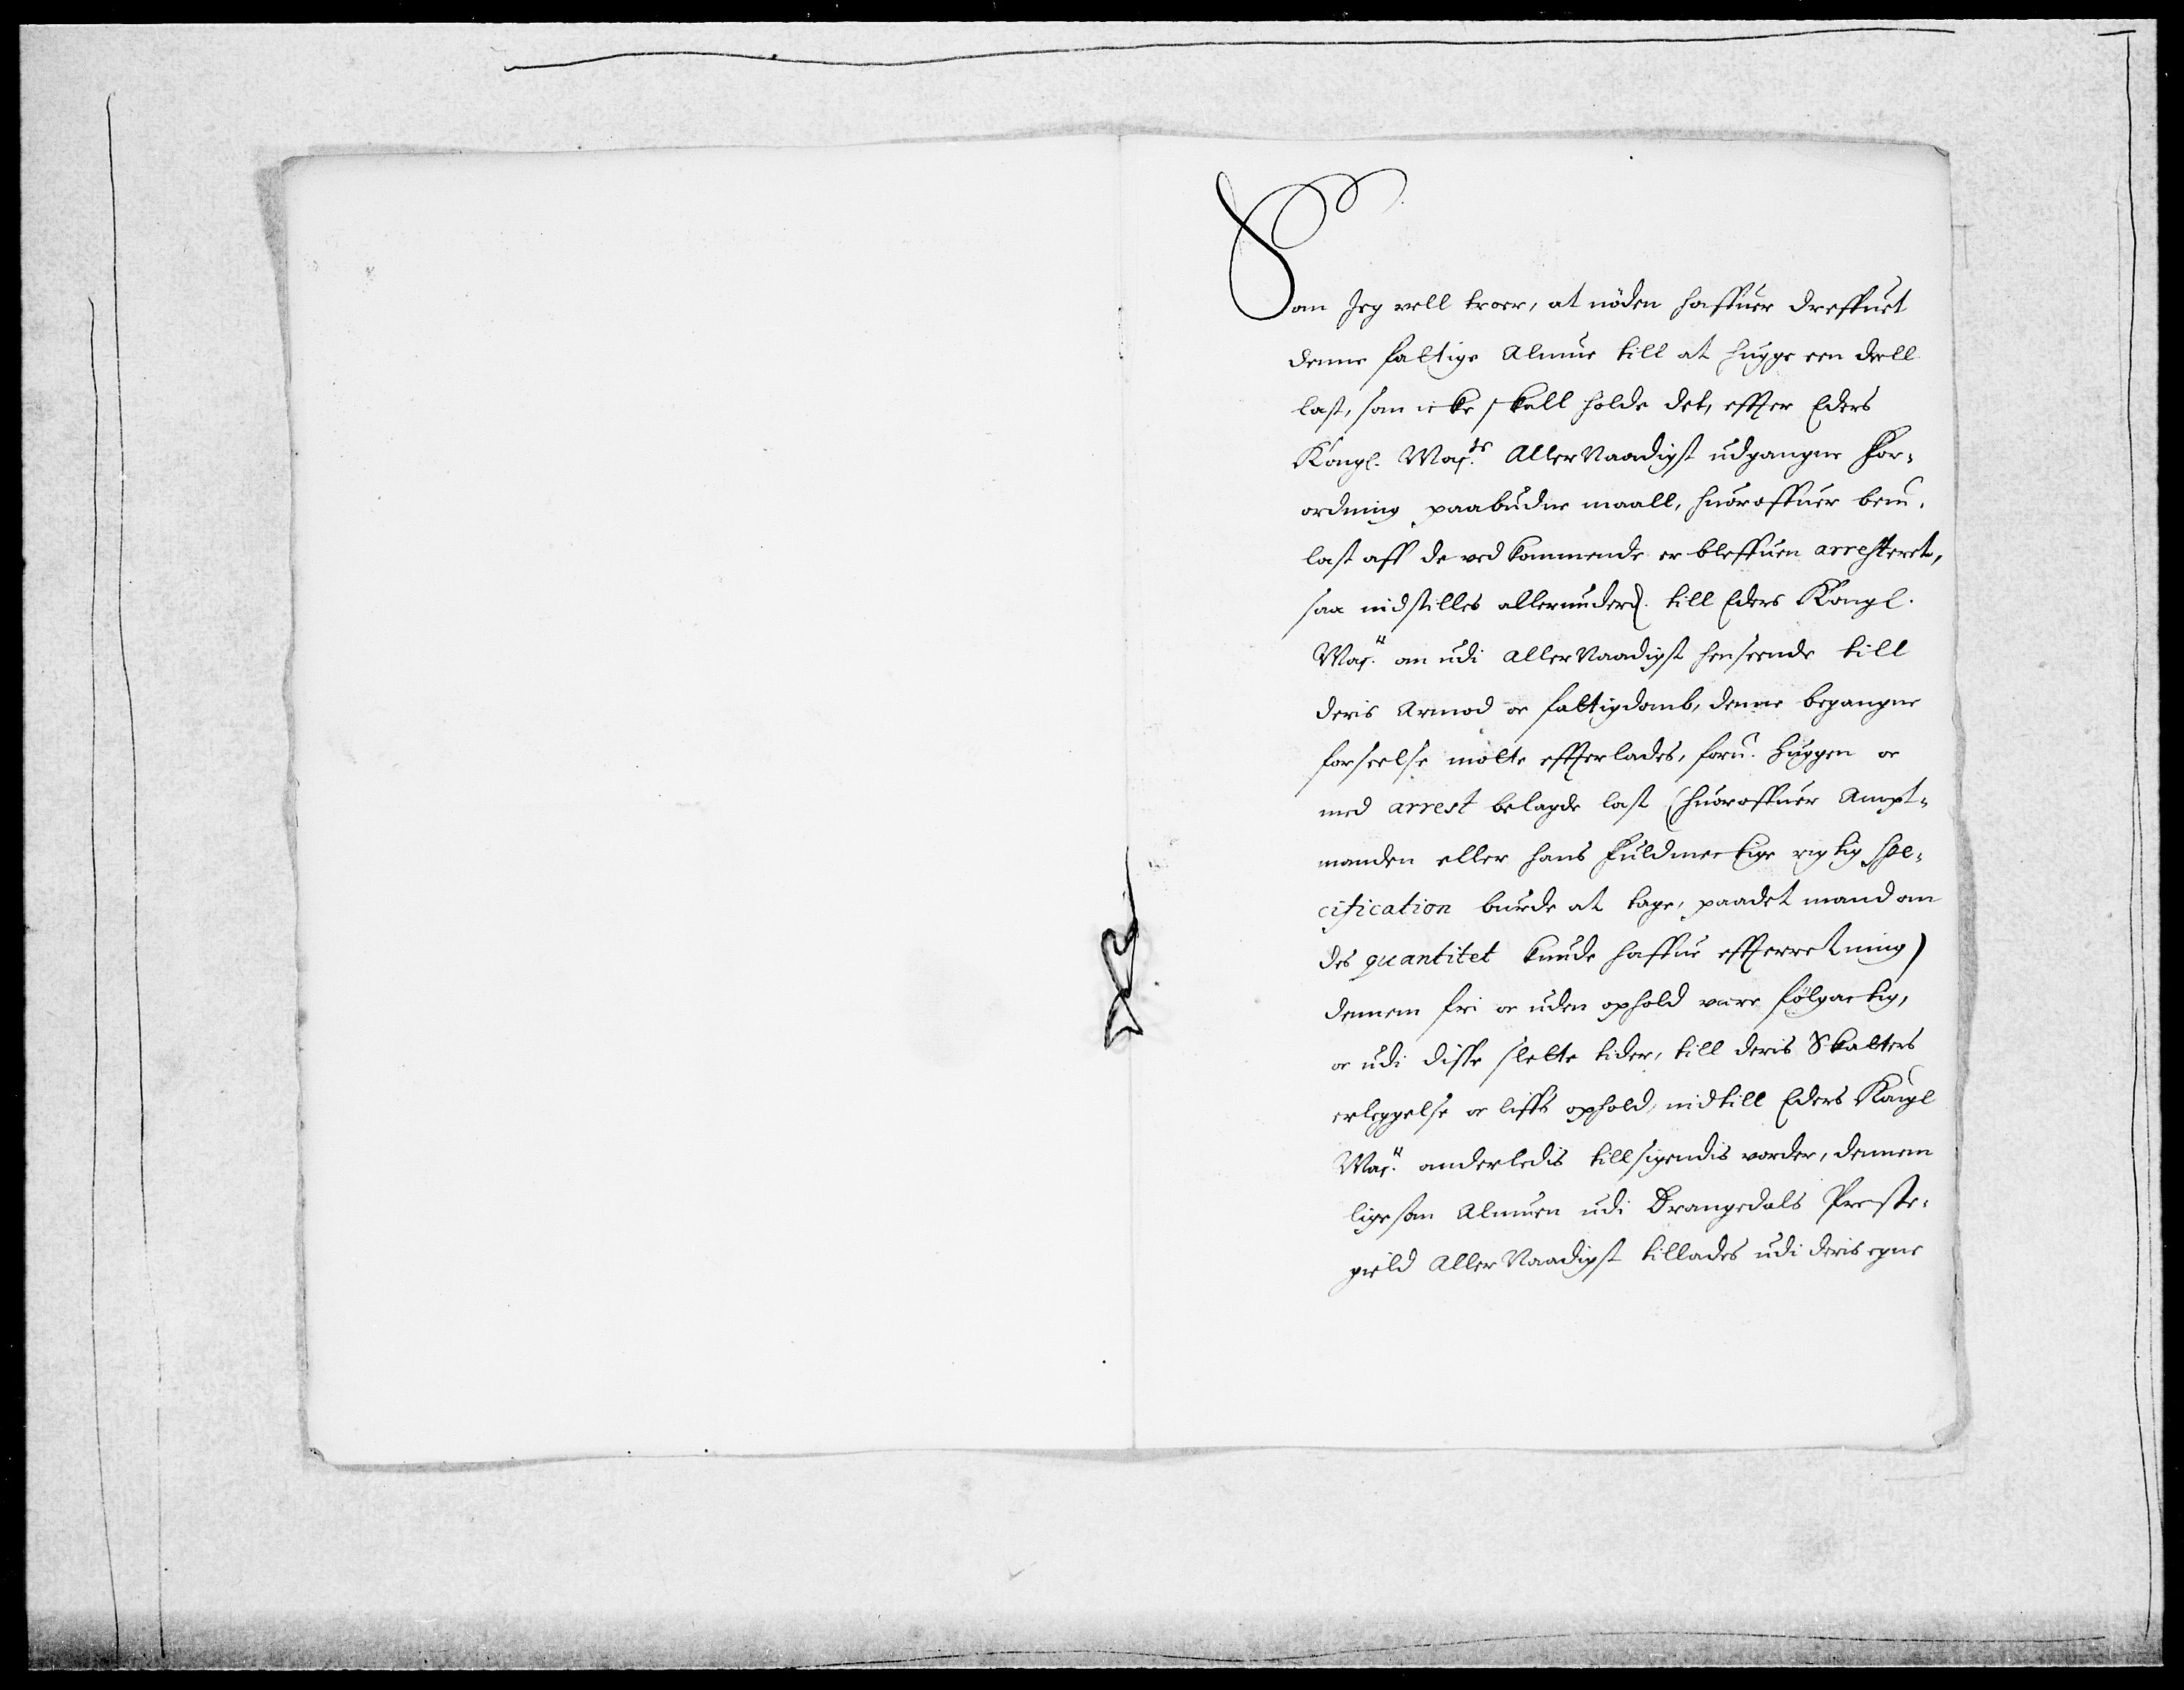 Som Jeg vell troer, at nöden haffuer dreffuet
denne fattige Almue till at hugge een deell
last, som icke skall holde det, effter Eders
Kongl. May:ts AllerNaadigst udgangne For-
ordning paabudne maall, huoroffuer bem:te
last aff de vedkommende er bleffuen arresteret,
saa indstilles allerunderd. till Eders Kongl.
May:tt om udi AllerNaadigst henseende till
deris Armod oc fattigdomb, denne begangne
forseelse motte effterlades, foru. huggen oc
med arrest belagde last (huoroffuer Ampt-
manden eller hans fuldmectige rigtig spe-
cification burde at tage, paadet mand om
des quantitet kunde haffue effterretning)
dennem fri oc uden ophold være fölgactig,
oc udi disse slette tider, till deris Skatters
erleggelse oc liffs ophold, indtill Eders Kongl
May:tt anderledis tillsigendis vorder, dennem
ligesom Almuen udi Drangedals Preste-
gield AllerNaadigst tillades udi deris egne